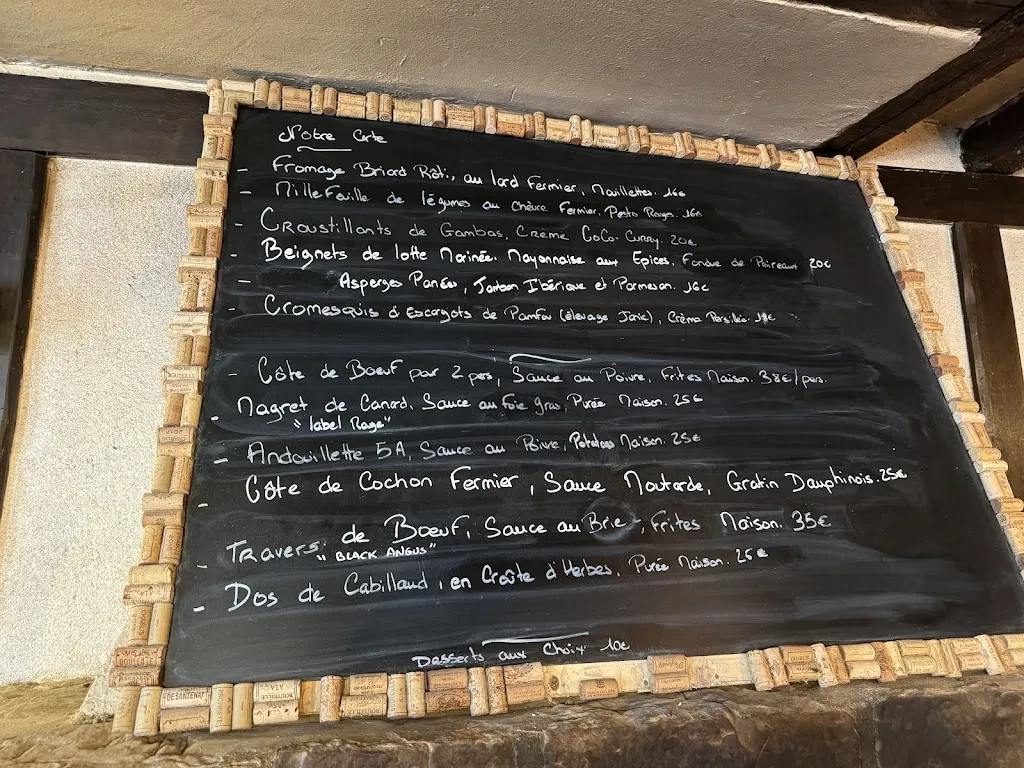 Notre Carte
- Fromage Briard Rôti, au lard Fermier, Mouillettes. 16€
- MilleFeuille de légumes au Chèvre Fermier, Pesto Rouge. 16€
- Croustillants de Gambas, Crème CoCo-Curry. 20€
- Beignets de lotte Marinée. Mayonnaise aux Epices, Fondue de Poireaux 20€
- Asperges Panées, Jambon Ibérique et Parmesan. 16€
- Cromesquis d'Escargots de (élevage Jarie), Crème Persillée.
- Côte de Boeuf pour 2 pers, Sauce au Poivre, Frites Maison. 38€/pers.
- Magret de Canard, Sauce au Foie gras Purée Maison. 25€
"label Rouge"
- Andouillette 5A, Sauce au Poivre, Maison. 25€
- Côte de Cochon Fermier, Sauce Moutarde, Gratin Dauphinois. 25€
- Travers de Boeuf, Sauce au Brie, Frites Maison. 35€
"BLACK ANGUS"
- Dos de Cabillaud, en Croûte d'Herbes, Purée Maison. 26€
Desserts aux Choix 10€
BOUTEILLE